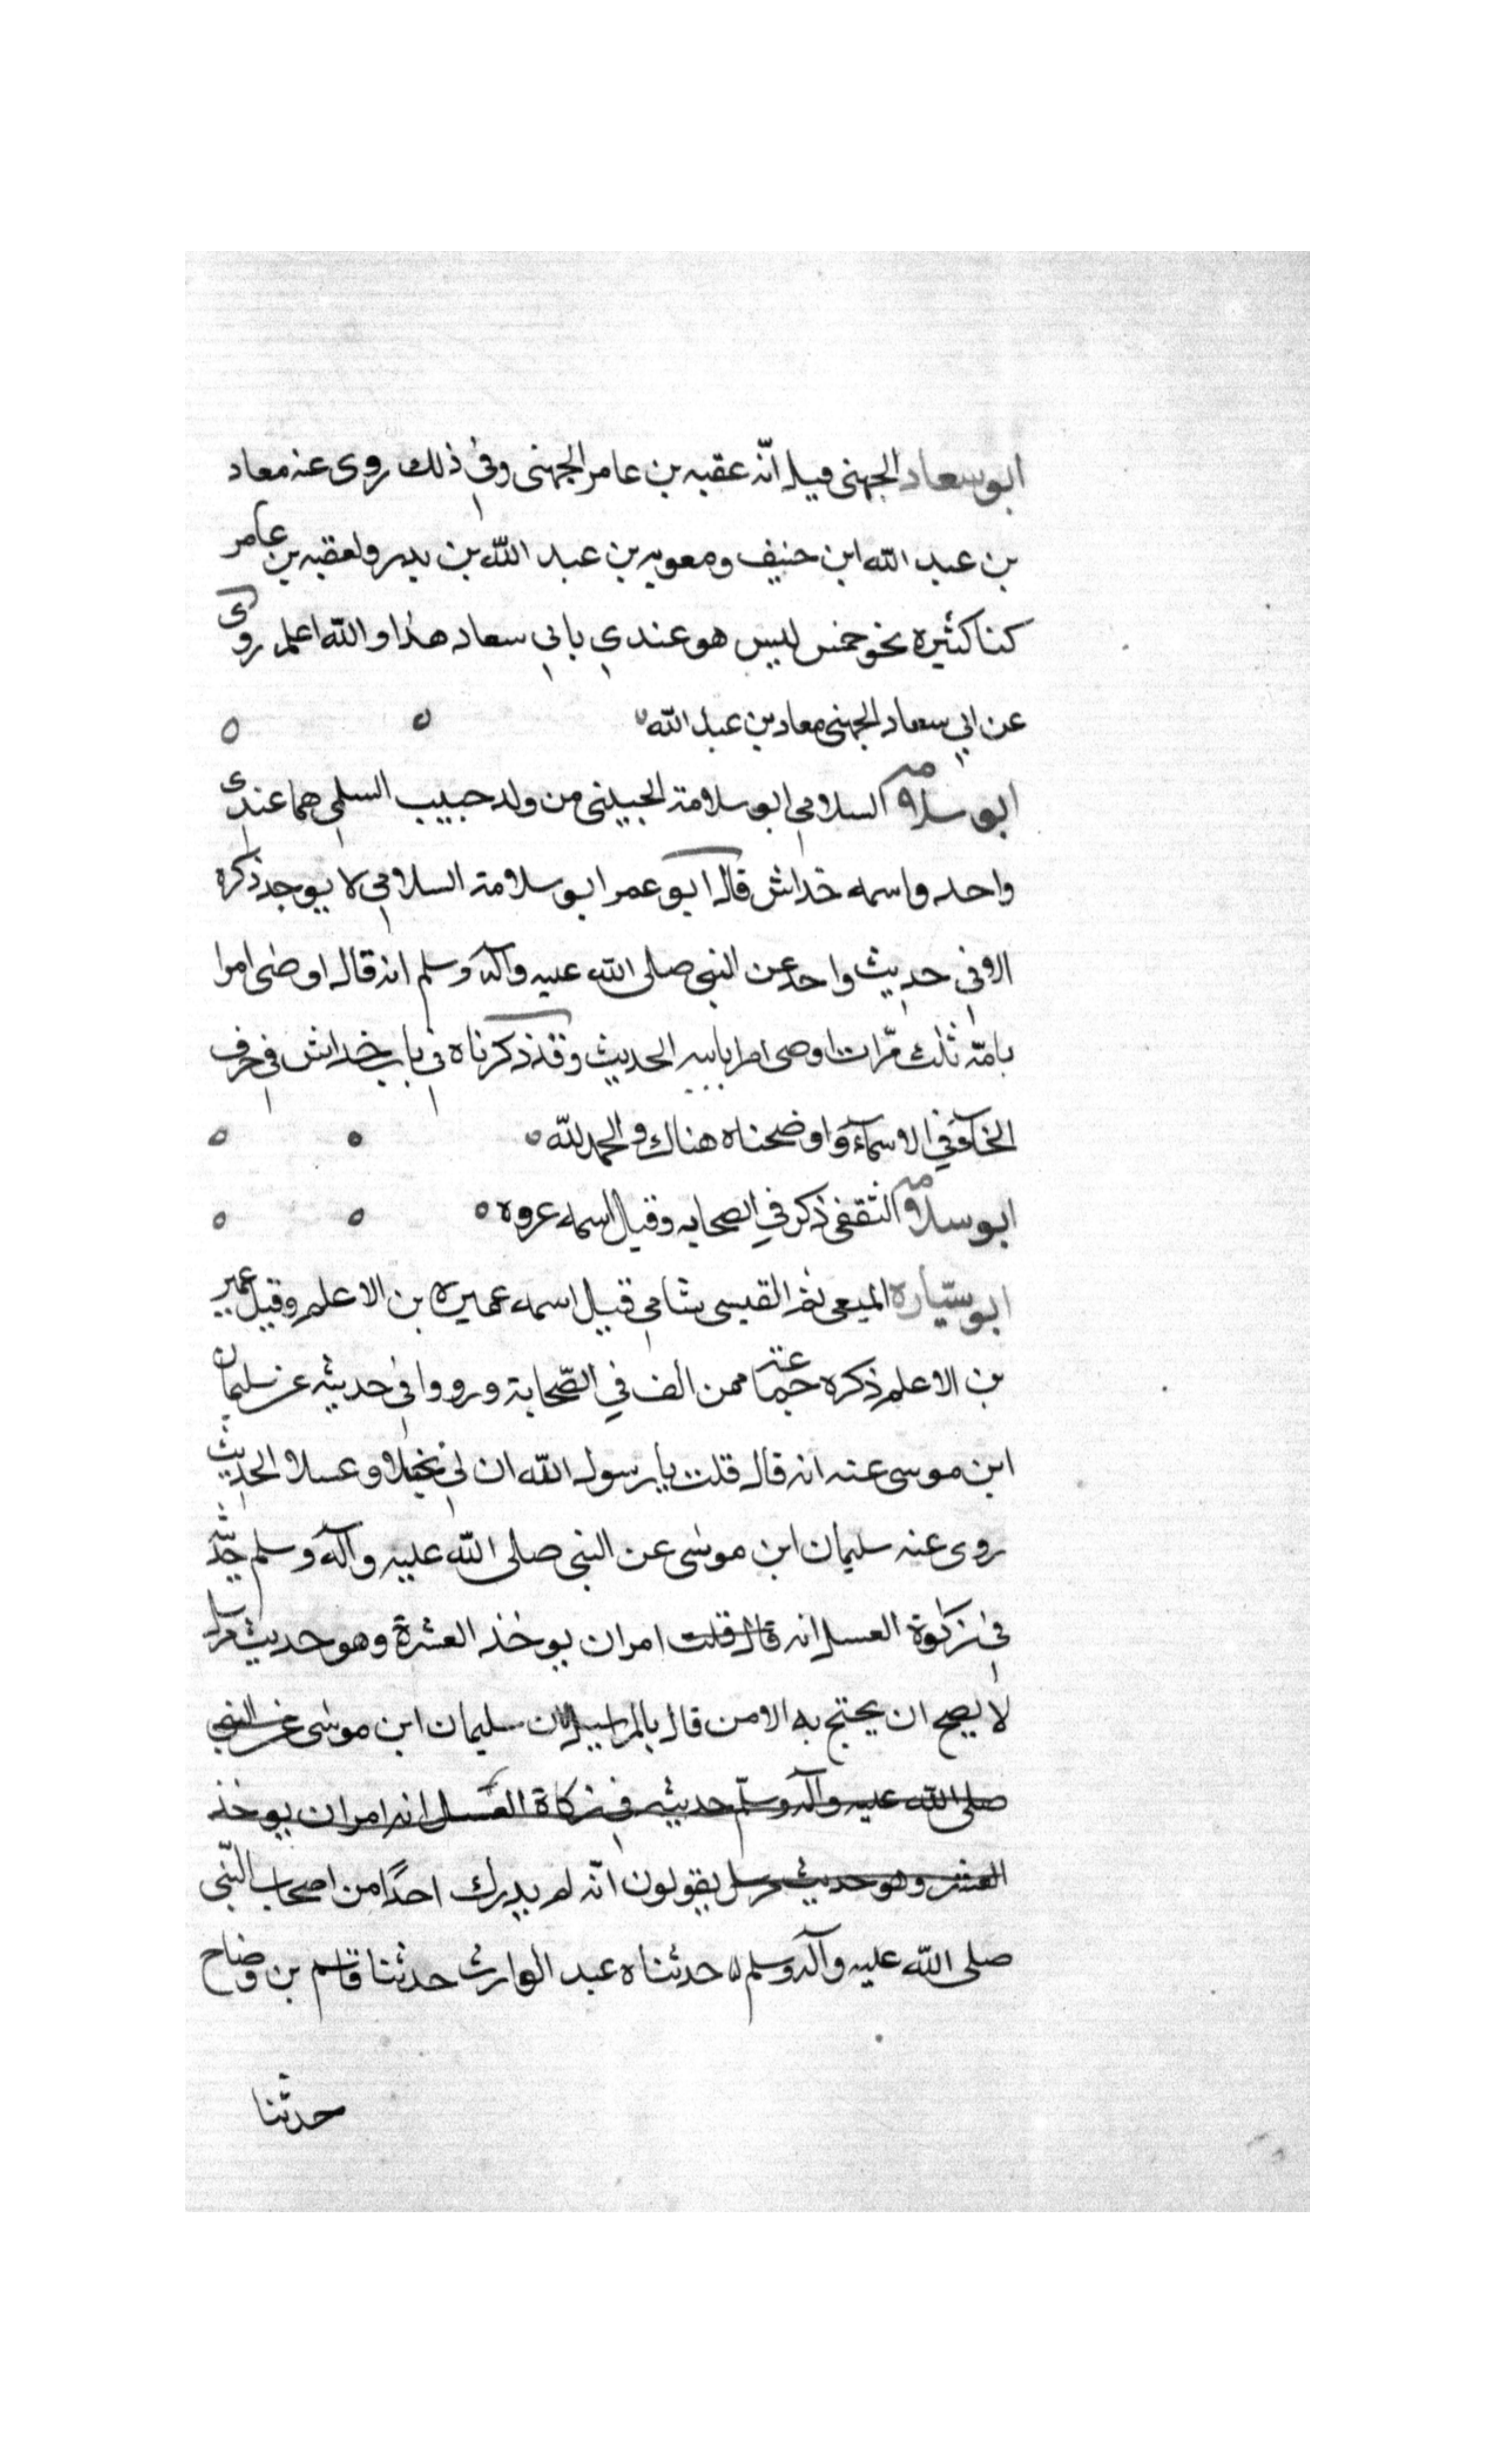 ابو سعاد الجهنى قيل انّه عقبه بن عامر الجهنى وفي ذلك روى عنه معاد
بن عبد الله ابن حنيف ومعويه بن عبد الله بن بدر ولعقبه بن عامر
كنا كثيره نحو خمس ليس هو عندي بابي سعاد هذا والله اعلم روى
عن ابي سعاد الجهنى معاد بن عبد الله
ابو سلامه السلامي ابو سلامة الحبيبنى من ولد حبيب السلمي هما عندي
واحد واسمه خداش قال ابو عمر ابو سلامة السلامي لا يوجد ذكره
الا في حديث واحد عن النبي صلى الله عليه وآله وسلم انه قال اوصى امرا
بامّه ثلث مرّات اوصى امرا بابيه الحديث وقد ذكرناه في باب خداش في حرف
الخآء في الاسمآء واوضحناه هناك والحمد لله
ابو سلامه الثقفى ذكر في الصحابه وقيل اسمه عروه
ابو سيّاره المتعى ثم القيسى شامي قيل اسمه عميره بن الاعلم وقيل عمير
بن الاعلم ذكره جماعة ممن الف في الصّحابة ورووا في حديثه عن سليمان
ابن موسى عنه انه قال قلت يا رسول الله ان لي نخلا وعسلا الحديث
روى عنه سليمان ابن موسى عن النبي صلى الله عليه وآله وسلم حديثه
في زكوة العسل انه قال قلت امر ان يوخذ العشرة وهو حديث مرسل
لا يصح ان يحتج به الا من قال بالمراسيل لان سليمان ابن موسى عن النبي
صلى الله عليه وآله وسلّم حديثه في زكاة العسل انه امر ان يوخذ
العشر وهو حديث مرسل يقولون انّه لم يدرك احدًا من اصحاب النّبي
صلى الله عليه وآله وسلم حدثناه عبد الوارث حدثنا قاسم بن وضاح
حدثنا